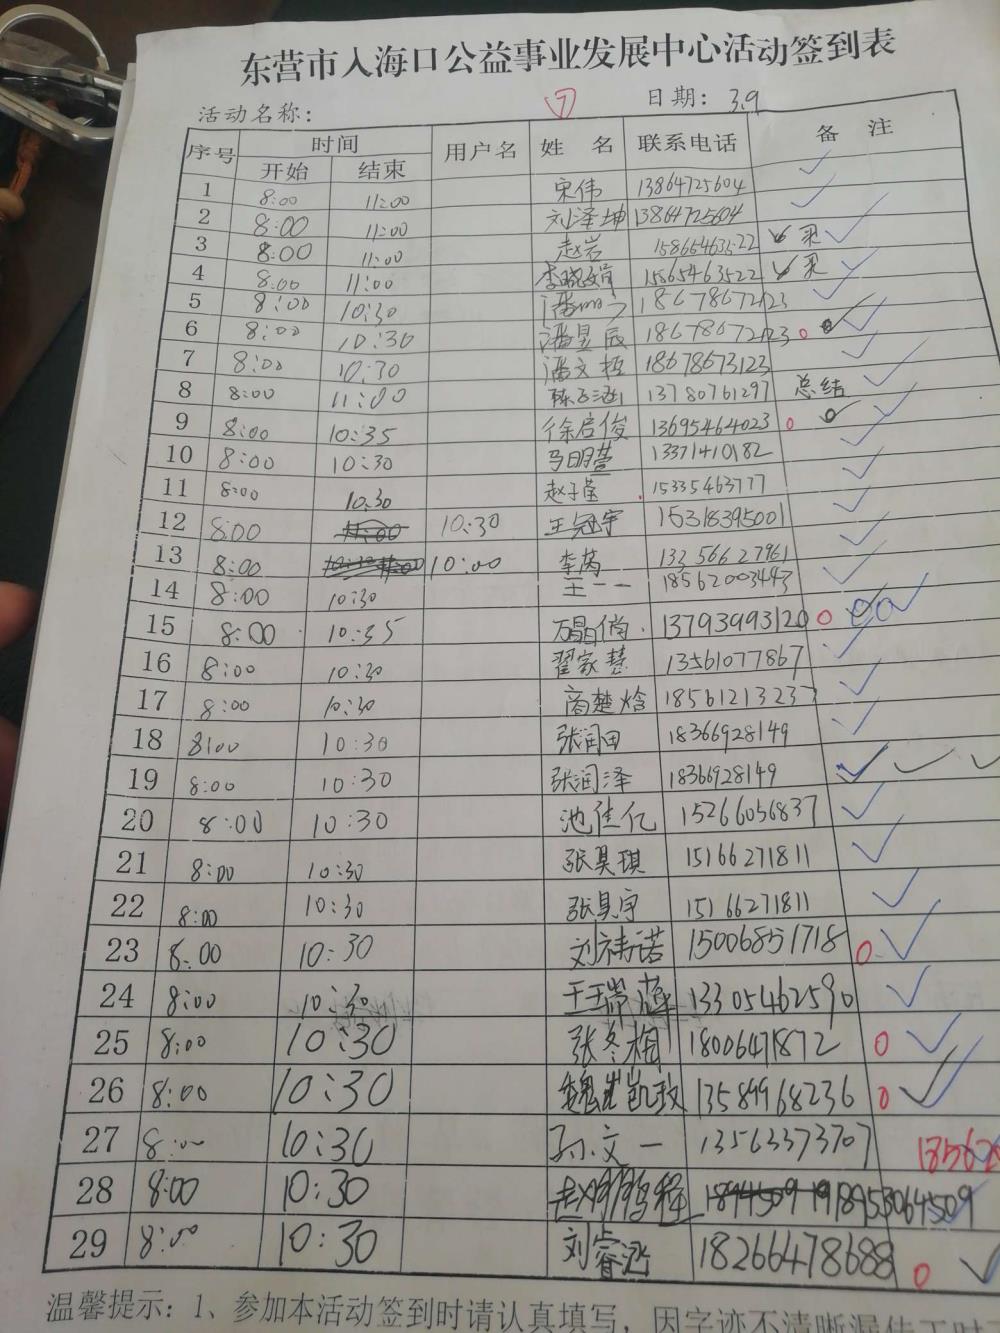 东营市入海口公益事业发展中心活动签到表
活动名称: ⑦ 日期: 3.9
序号 时间 用户名 姓 名 联系电话 备 注
开始 结束
1 8:00 11:00 宋伟 13864725604
2 8:00 11:00 刘泽坤 13864725604
3 8:00 11:00 赵岩 15865463522 采
4 8:00 11:00 李晓娟 15865463522 采
5 8:00 10:30 18678672123
6 8:00 10:30 潘昱辰 18678672123 0
7 8:00 10:30 潘文哲 18678673123
8 8:00 11:00 13780761297 总结
9 8:00 10:35 徐启俊 13695464023 0
10 8:00 10:30 马明萱 13371410182
11 8:00 10:30 赵子莹 15335463777
12 8:00 11:00 10:30 王冠宇 15318395001
13 8:00 10:00 李芮 13256627961
14 8:00 10:30 王一一 18562003443
15 8:00 10:35 13793993120 0
16 8:00 10:30 翟家慧 13561077867
17 8:00 10:30 商楚焓 18561213237
18 8:00 10:30 张润田 18366928149
19 8:00 10:30 张润泽 18366928149
20 8:00 10:30 池佳仁 15266056837
21 8:00 10:30 张昊琪 15166271811
22 8:00 10:30 张昊宇 15166271811
23 8:00 10:30 刘祎诺 15006851718 0
24 8:00 10:30 13305462590
25 8:00 10:30 张冬梅 18006471872 0
26 8:00 10:30 魏凯玫 13589968236 0
27 8:00 10:30 孙文一 13563373707 18562
28 8:00 10:30 18953064509
29 8:00 10:30 刘睿涵 18266478688 0
温馨提示: 1、参加本活动签到时请认真填写, 因字迹不清晰漏传工时